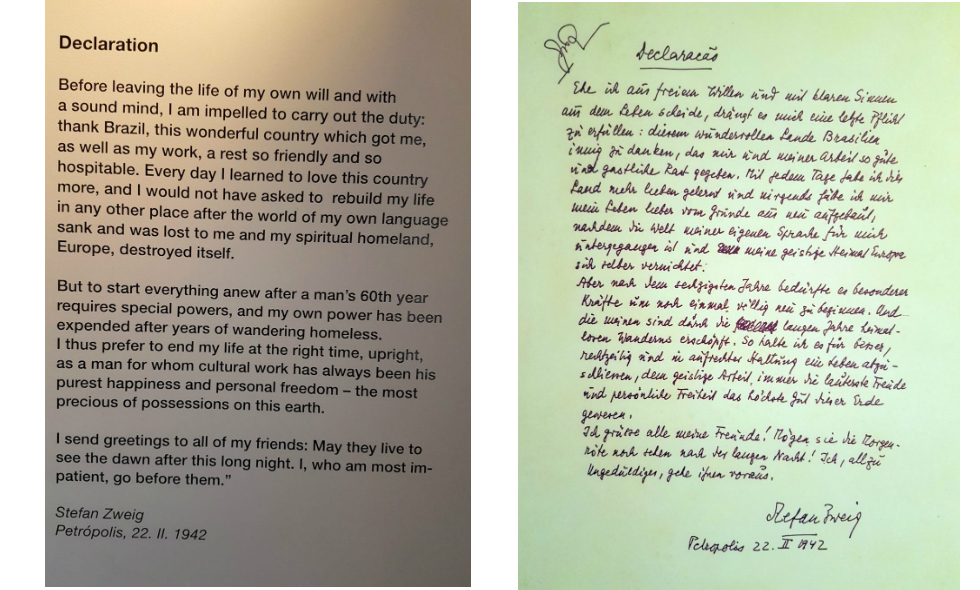 Declaration
Before leaving the life of my own will and with
a sound mind, I am impelled to carry out the duty:
thank Brazil, this wonderful country which got me,
as well as my work, a rest so friendly and so
hospitable. Every day I learned to love this country
more, and I would not have asked to rebuild my life
in any other place after the world of my own language
sank and was lost to me and my spiritual homeland,
Europe, destroyed itself.
But to start everything anew after a man's 60th year
requires special powers, and my own power has been
expended after years of wandering homeless.
I thus prefer to end my life at the right time, upright,
as a man for whom cultural work has always been his
purest happiness and personal freedom – the most
precious of possessions on this earth.
I send greetings to all of my friends: May they live to
see the dawn after this long night. I, who am most im-
patient, go before them."
Stefan Zweig
Petrópolis, 22. II. 1942
Declaracão
Ehe ich aus freiem Willen und mit klaren Sinnen
aus dem Leben scheide, drängt es mich eine letzte Pflicht
zu erfüllen: diesem wundervollen Lande Brasilien
innig zu danken, das mir und meiner Arbeit so gute
und gastliche Rast gegeben. Mit jedem Tage habe ich dies
Land mehr lieben gelernt und nirgends hätte ich mir
mein Leben lieber vom Grunde aus neu aufgebaut,
nachdem die Welt meiner eigenen Sprache für mich
untergegangen ist und meine geistige Heimat Europa
sich selber vernichtet.
Aber nach dem sechzigsten Jahre bedürfte es besonderer
Kräfte um noch einmal völlig neu zu beginnen. Und
die meinen sind durch die langen Jahre heimat-
losen Wanderns erschöpft. So halte ich es für besser,
rechtzeitig und in aufrechter Haltung ein Leben abzu-
schliessen, dem geistige Arbeit immer die lauterste Freude
und persönliche Freiheit das höchste Gut dieser Erde
gewesen.
Ich grüsse alle meine Freunde! Mögen sie die Morgen-
röte noch sehen nach der langen Nacht! Ich, allzu
Ungeduldiger, gehe ihnen voraus.
Stefan Zweig
Petropolis 22. II 1942